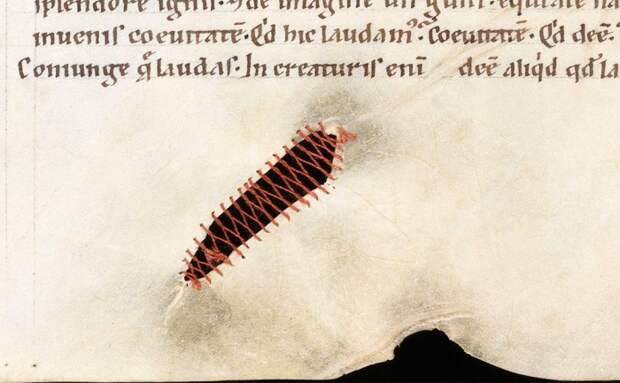 splendore ignis. Vde imagine un gunt. equitate na
inuenis coeuitatē. Qd hic laudam᷒. Coeuitatē. Qd deē.
Coniunge q̄ laudas. In creaturis enī deē aliqd qd la